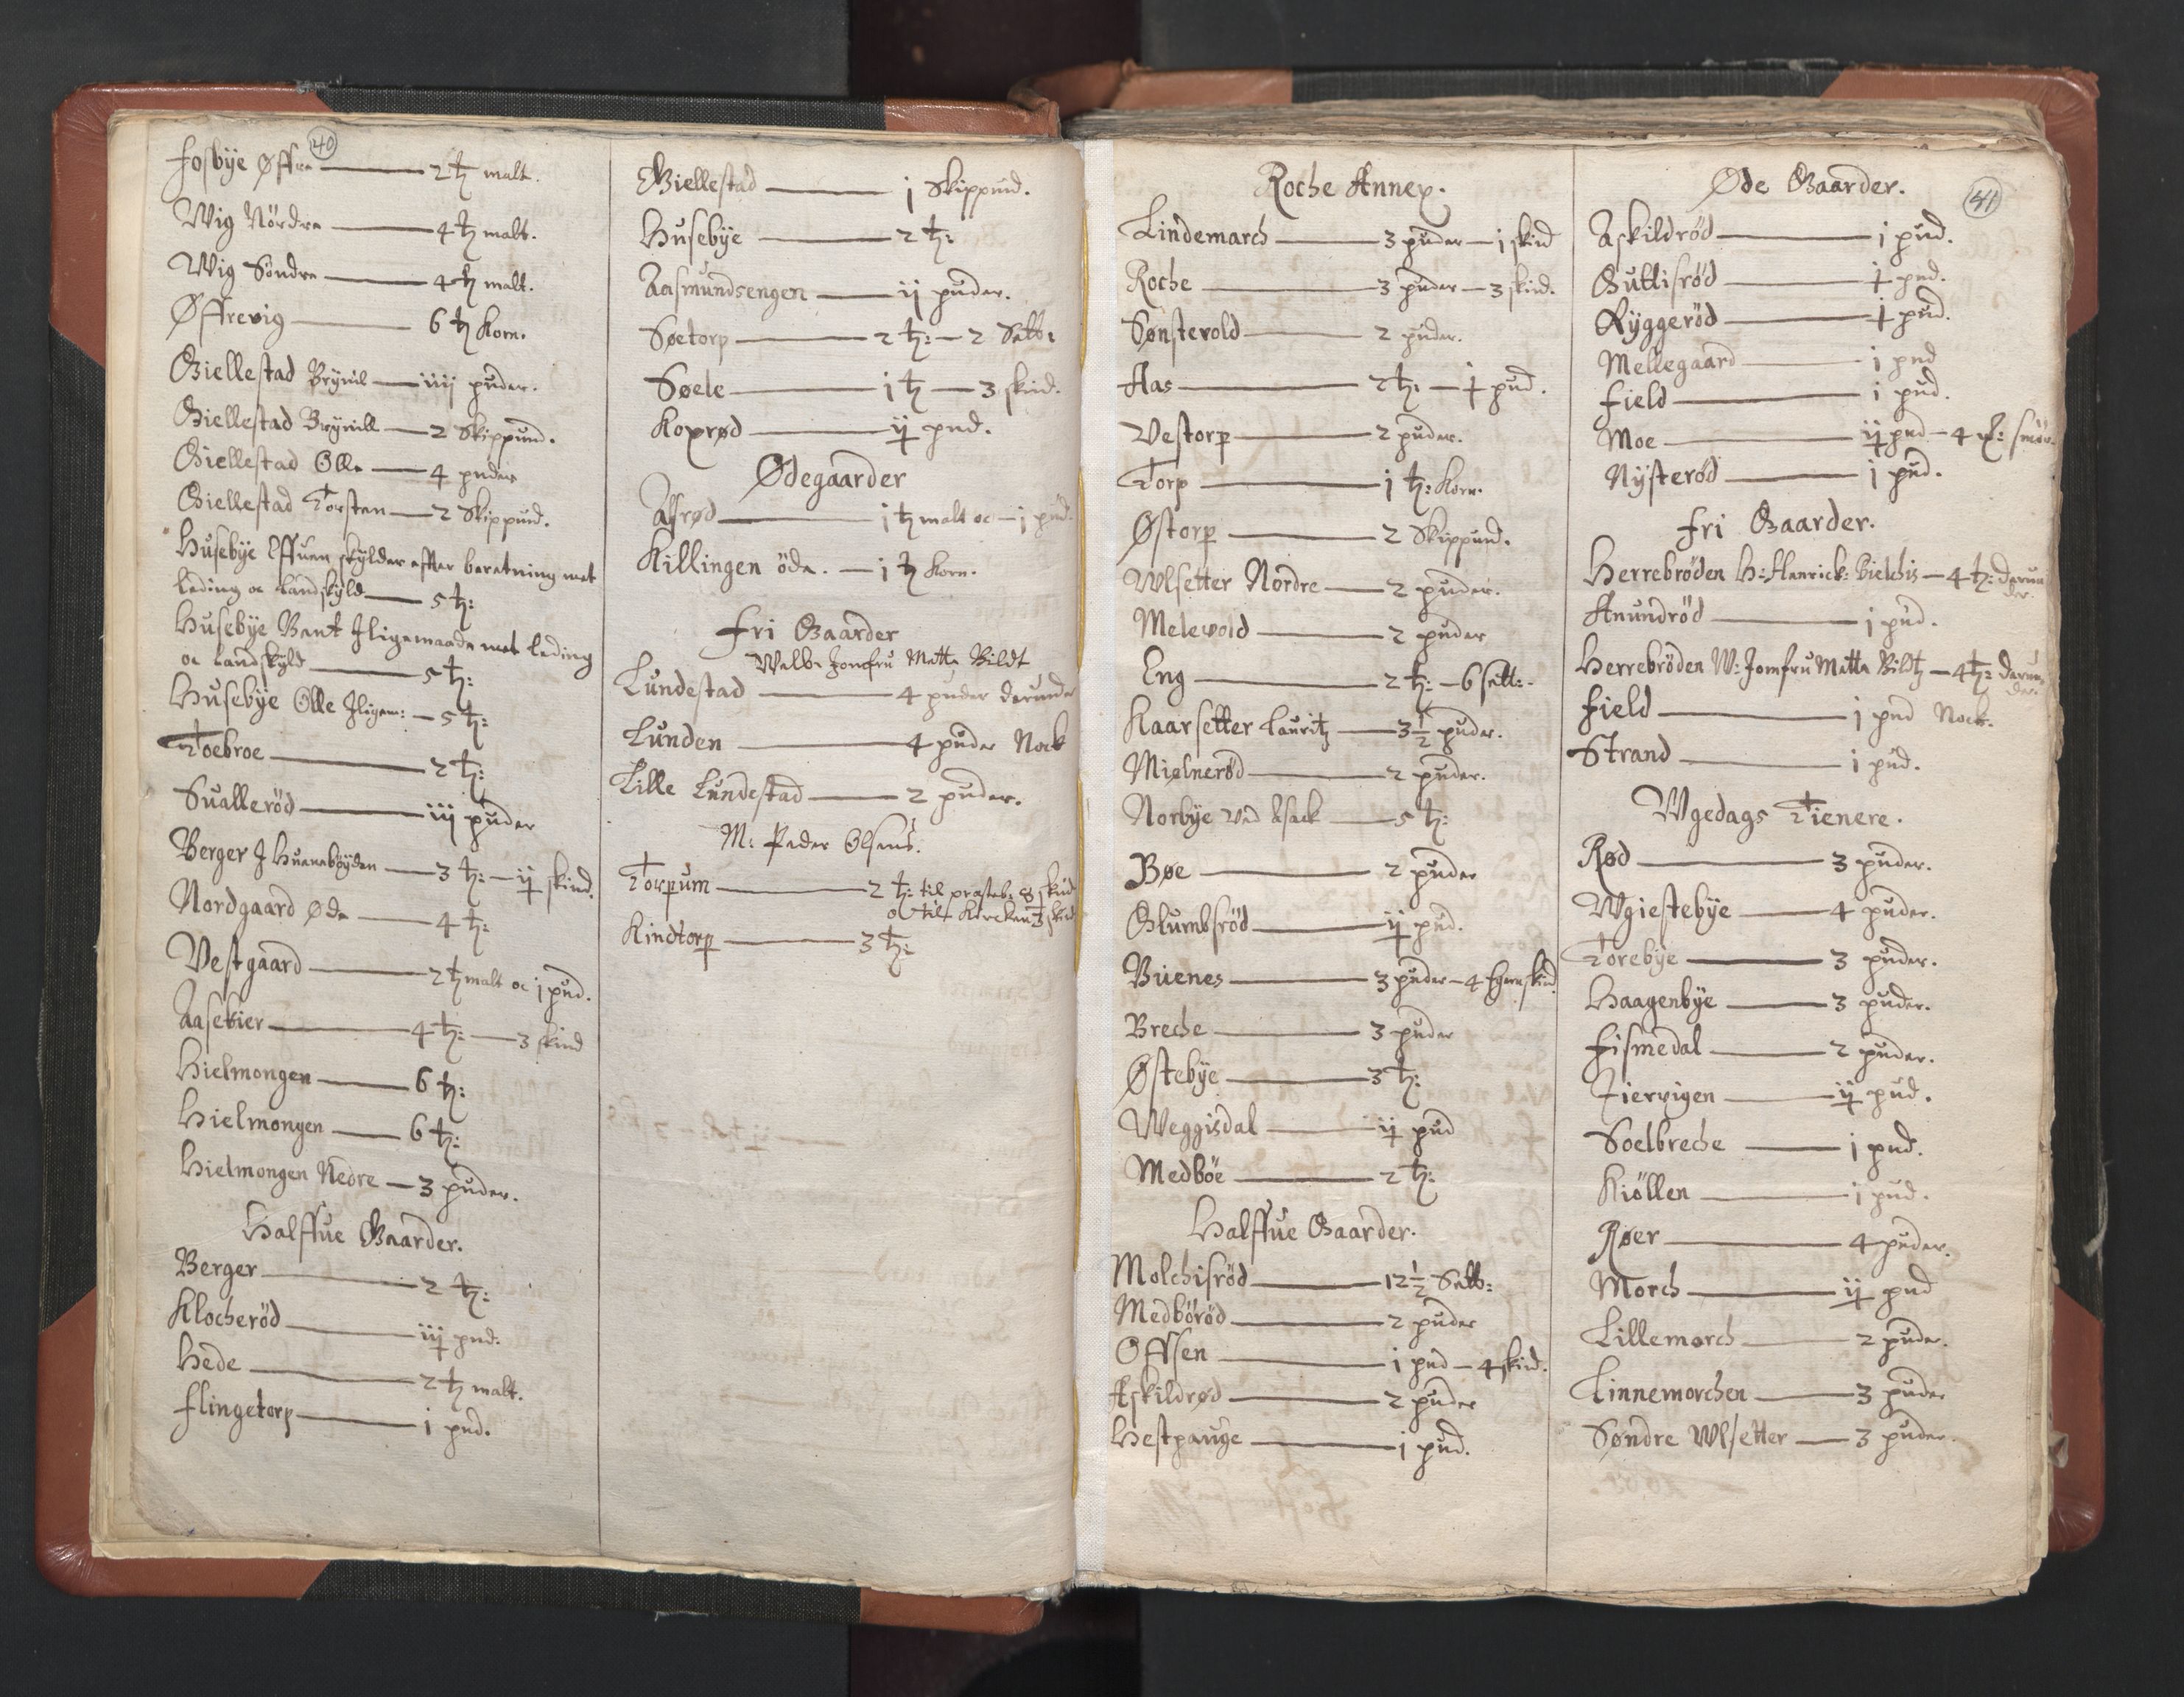 40
Fosbÿe Øffre — 2 tʒ malt.
Wig Nördre — 4 tʒ malt.
Wig Söndre — 4 tʒ malt.
Øffrevig — 6 tʒ Korn.
Giellestad Brÿnil — iiij puder.
Giellestad Brÿnill — 2 Skippund.
Giellestad Olle — 4 puder
Giellestad Torsten — 2 Skippund.
Husebÿe Effuen skylder effter beretning met
leding oc landskyld — 5 tʒ:
Husebÿe Bent Jligemaade met leding
oc landskyld — 5 tʒ:
Husebÿe Olle Jligem: — 5 tʒ:
Toebroe — 2 tʒ:
Sualleröd — iij puder
Berger J Huenebøyden — 3 tʒ: — ij skind.
Nordgaard Øde — 4 tʒ:
Vestgaard — 2 tʒ malt oc j pud.
Aasekier — 4 tʒ: — 3 skind
Hielmongen — 6 tʒ:
Hielmongen — 6 tʒ:
Hielmongen Nedre — 3 puder.
Halffue Gaarder.
Berger — 2 tʒ:
Klocheröd — iij pud.
Hede — 2 tʒ malt.
Flingetorp — 1 pud.
Giellestad — j Skippund.
Husebÿe — 2 tʒ:
Aasmundsengen — ij puder.
Søetorp — 2 tʒ: — 2 Sett:
Søele — j tʒ — 3 skind.
Koxrød — ij pud.
Ødegaarder
Alfrød — j tʒ malt oc — j pud.
Killingen öde. — j tʒ Korn.
Fri Gaarder
Welb. Jomfru Mette Bildt
Lundestad — 4 puder derunder
Lunden — 4 puder Nock
Lille Lundestad — 2 puder.
M: Peder Olsens.
Torpum — 2 tʒ: til presteb: 8 skind
oc til Kircken 3 skind
Kindtorp — 3 tʒ:
Roche Annex.
Lindemarch — 3 puder — j skind
Roche — 3 puder — 3 skind.
Sønstevold — 2 puder.
Aas — 2 tʒ: — j pud.
Vestorp — 2 puder.
Torp — 1 tʒ: Korn.
Østorp — 2 Skippund.
Wlsetter Nordre — 2 puder.
Melevold — 2 puder
Eng — 2 tʒ: — 6 sett:
Kaarsetter Lauritz — 3½ puder.
Miølnerød — 2 puder.
Norbÿe ved Esack — 5 tʒ:
Bøe — 2 puder
Glumbsröd — ij pud.
Buenes — 3 puder — 4 Egernskind.
Breche — 3 puder
Østebÿe — 3 tʒ:
Weggisdal — ij pud
Medböe — 2 tʒ:
Halffue Gaarder.
Molchisröd — 12½ Sett:
Medböröd — 2 puder
Offsen — 1 pud — 4 skind.
Askildrød — 2 puder
Hestpauge — 1 pud.
Øde Gaarder.
41
Askildröd — 1 pud.
Guttisröd — j pud.
Ryggeröd — j pud.
Mellegaard — j pud
Field — 1 pud.
Moe — ij pud — 4 smör.
Nÿsteröd — j pud.
Fri Gaarder.
Herrebröden H: Henrick: Bielchis — 4 tʒ: derun
der.
Anundröd — 1 pud.
Herrebröden W: Jomfru Mette Biltz — 4 tʒ: derun
der.
Field — 1 pud Nock.
Strand — 1 pud.
Wgedags Tienere.
Rød — 3 puder.
Wgiestebÿe — 4 puder.
Torebÿe — 3 puder.
Haagenbÿe — 3 puder.
Fismedal — 2 puder.
Tiervigen — ij pud.
Soelbreche — 1 pud.
Kiöllen — 1 pud.
Røer — 4 puder.
Morch — ij pud
Lillemorch — 2 puder.
Linnemorchen — 3 puder
Søndre Wlsetter — 3 puder.